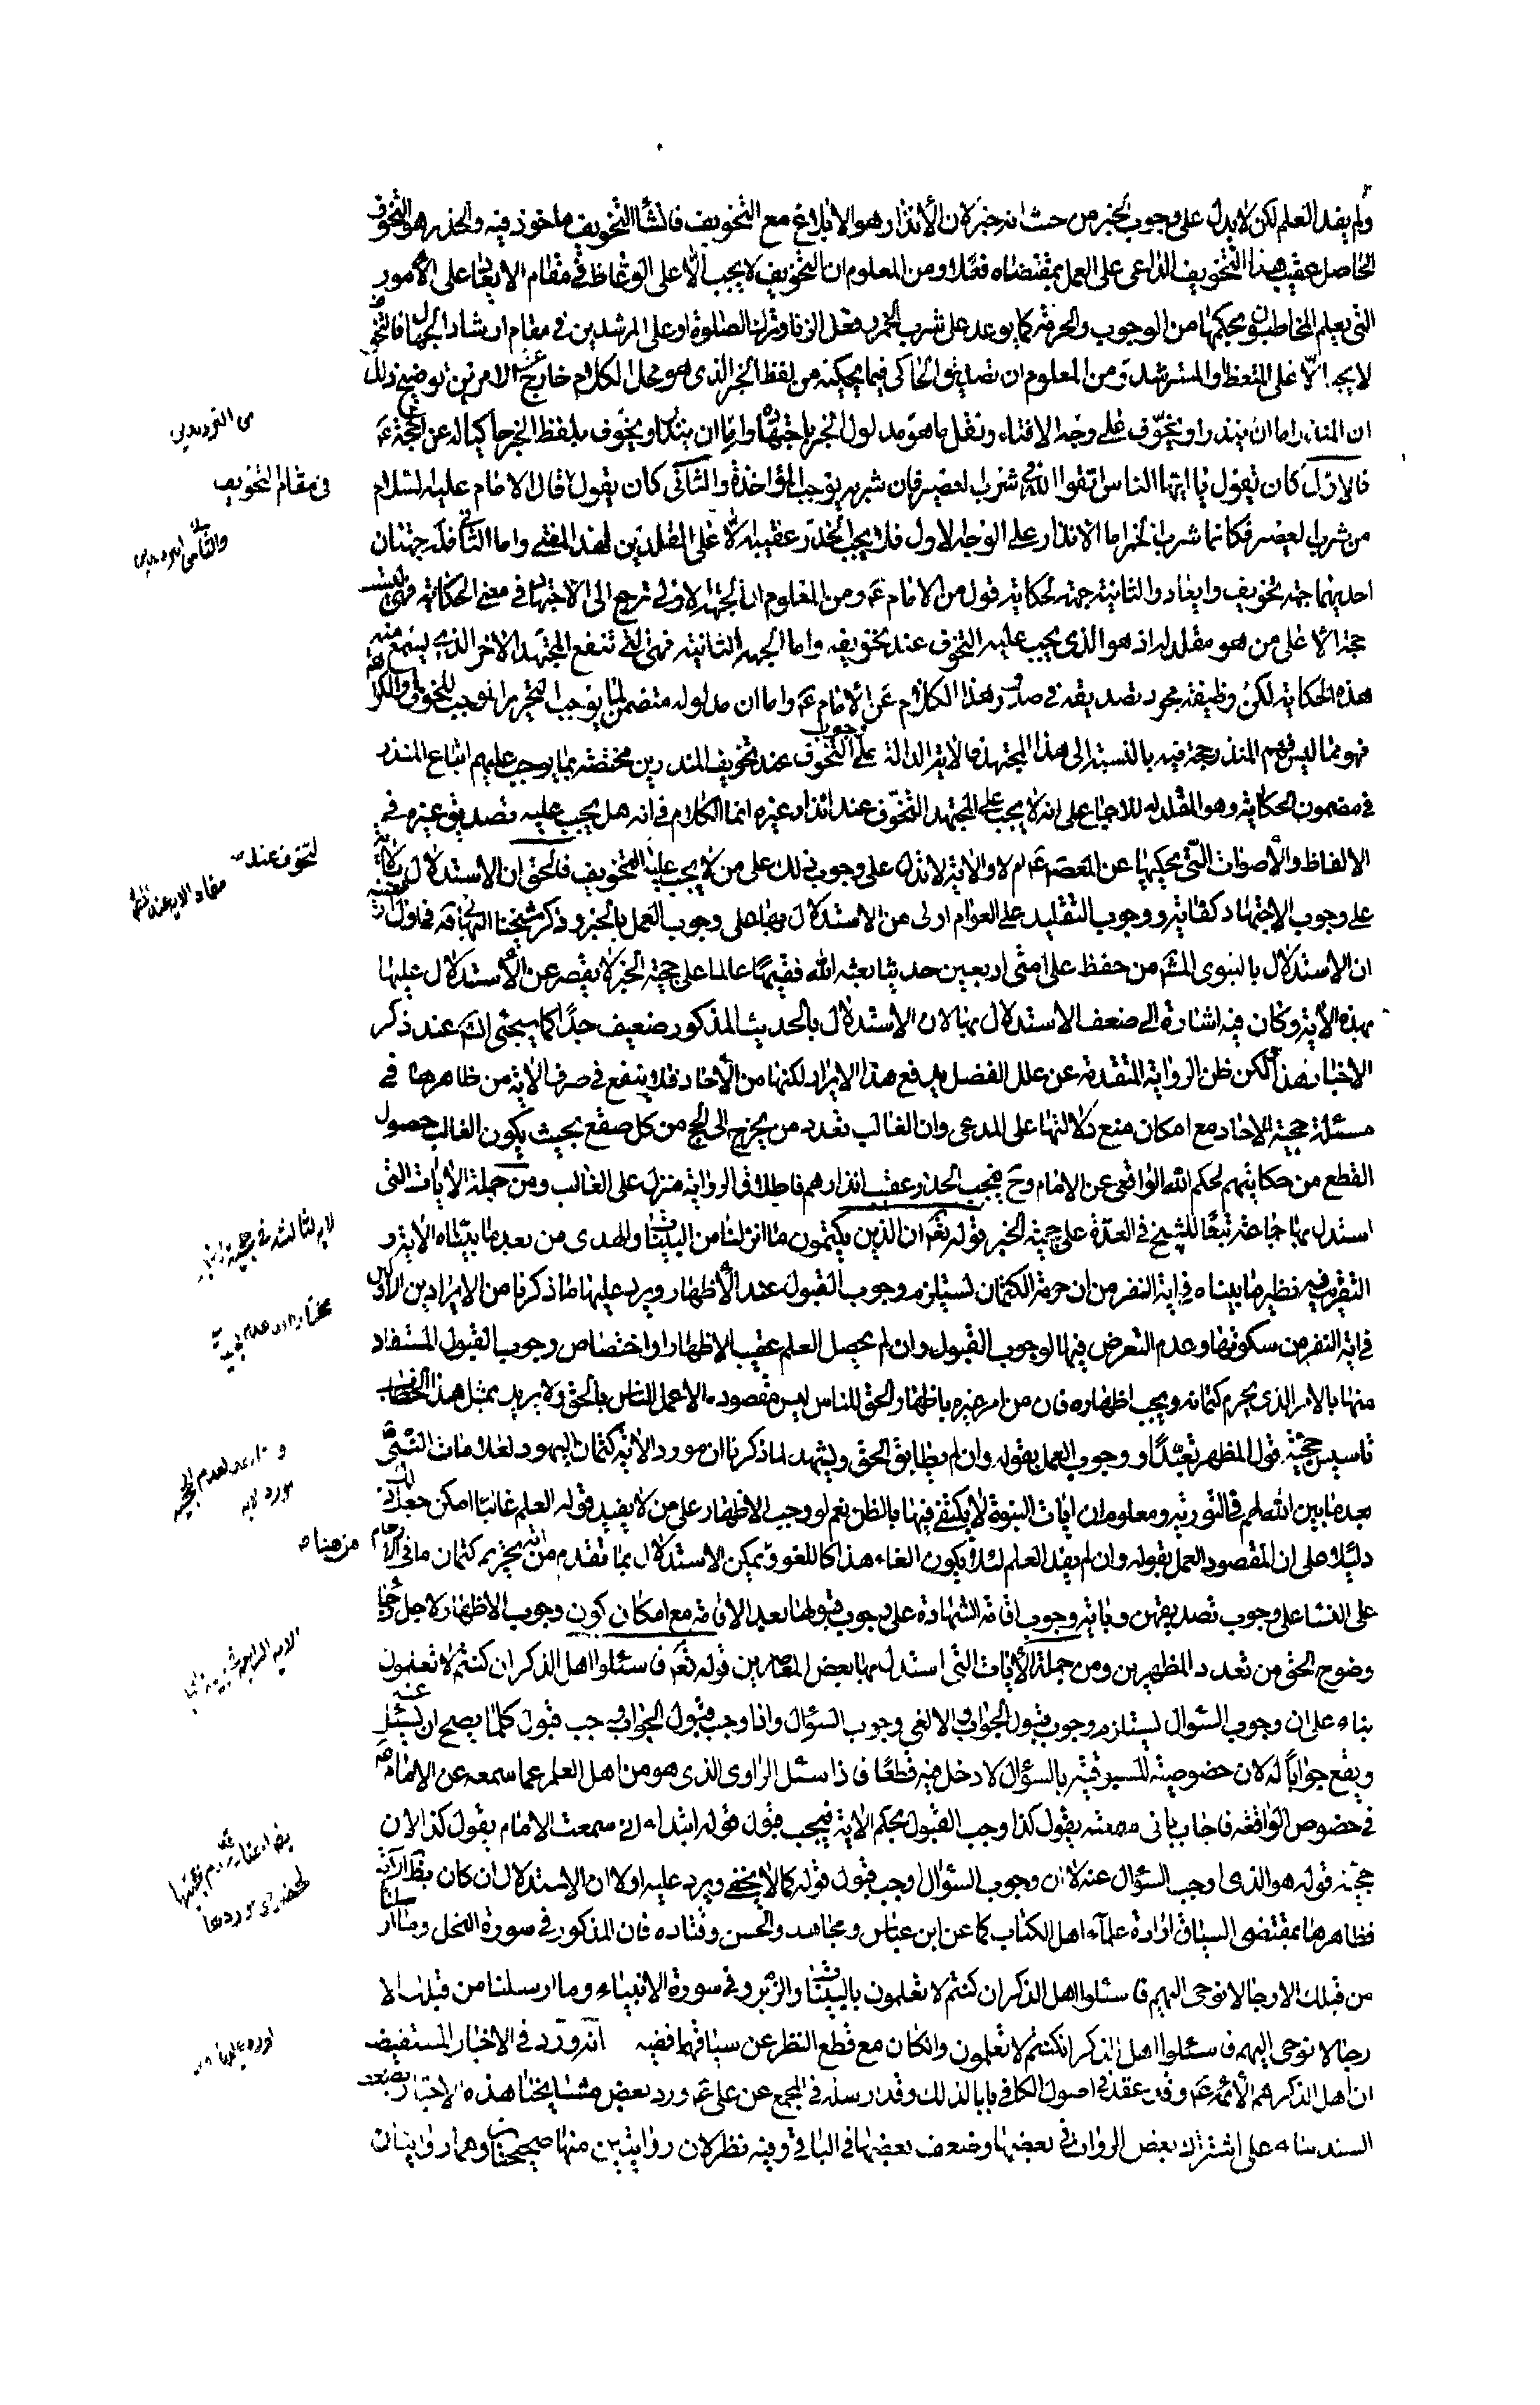 ولم يفد العلم لكن لا يدل على وجوب الخبر من حيث انه خبر لان الانذار هو الابلاغ مع التخويف فانشاء التخويف ماخوذ فيه والحذر هو التخوف
الحاصل عقيب هذا التخويف الداعى على العمل بمقتضاه فعلا ومن المعلوم ان التخويف لا يجب الا على الوعاظ فى مقام الايعاد على الامور
التى يعلم المخاطبون بحكمها من الوجوب والحرمة كما يوعد على شرب الخمر وفعل الزنا وترك الصلوة او على المرشدين فى مقام ارشاد الجهال فالتخوف
لا يجب الا على المتعظ والمسترشد ومن المعلوم ان تصديق الحاكى فيما يحكيه من لفظ الخبر الذى هو محل الكلام خارج عن الامرين توضيح ذلك
ان المنذر اما ان ينذر او يخوف على وجه الافتاء ونقل ما هو مدلول الخبر باجتهاده واما ان ينذر او يخوف بلفظ الخبر حاكيا له عن الحجة ع
فالاول كان يقول يا ايها الناس اتقوا الله فى شرب العصير فان شربه يوجب المؤاخذة والثانى كان يقول قال الامام عليه السلام
من شرب العصير فكانما شرب الخمر اما الانذار على الوجه الاول فلا يجب الحذر عقيبه الا على المقلدين لهذا المفتى واما الثانى فله جهتان
احديهما جهة تخويف وايعاد والثانية جهة لحكاية قول من الامام ع ومن المعلوم ان الجهة الاولى ترجع الى الاجتهاد فى معنى الحكاية فهى ليست
حجة الا على من هو مقلد له اذ هو الذى يجب عليه التخوف عند تخويفه واما الجهة الثانية فهى التى تنفع المجتهد الاخر الذى يسمع منه
هذه الحكاية لكن وظيفته مجرد تصديقه فى صدور هذا الكلام عن الامام ع واما ان مدلوله متضمن لما يوجب التحريم الموجب للخوف او الكراهة
فهو مما ليس فهم المنذر حجة فيه بالنسبة الى هذا المجتهد فالاية الدالة على وجوب التخوف عند تخويف المنذرين مختصة بما يوجب عليهم اتباع المنذر
فى مضمون الحكاية وهو المقلد له للاجماع على انه لا يجب على المجتهد التخوف عند انذار غيره انما الكلام فى انه هل يجب عليه تصديق غيره فى
الالفاظ والاصوات التى يحكيها عن المعصوم ع ام لا والاية لا تدل على وجوب ذلك على من لا يجب عليه التخويف فالحق ان الاستدلال بالاية
على وجوب الاجتهاد كفاية ووجوب التقليد على العوام اولى من الاستدلال بها على وجوب العمل بالخبر وذكر شيخنا البهائى قه فى اول اربعينه
ان الاستدلال بالنبوى المشهور من حفظ على امتى اربعين حديثا بعثه الله فقيها عالما على حجية الخبر لا يقصر عن الاستدلال عليها
بهذه الاية وكان فيه اشارة الى ضعف الاستدلال بها لان الاستدلال بالحديث المذكور ضعيف جدا كما سيجئ انشاء عند ذكر
الاخبار هذا ولكن ظن الرواية المتقدمة عن علل الفضل يدفع هذا الايراد لكنها من الاحاد فلا ينفع فى صرف الاية من ظاهرها فى
مسئلة حجية الاحاد مع امكان منع دلالتها على المدعى وان الغالب تعدد من يخرج الى الحج من كل صقع بحيث يكون الغالب حصول
القطع من حكايتهم لحكم الله الواقعى عن الامام وح فيجب الحذر عقيب انذارهم فاطلاق الرواية منزل على الغالب ومن جملة الايات التى
استدل بها جماعة تبعا للشيخ فى العدة على حجية الخبر قوله تع ان الذين يكتمون ما انزلنا من البينات والهدى من بعد ما بيناه الاية و
التقريب فيه نظير ما بيناه فى اية النفر من ان حرمة الكتمان تستلزم وجوب القبول عند الاظهار ويرد عليها ما ذكرنا من الايرادين الاولين
فى اية النفر من سكوتها وعدم التعرض فيها لوجوب القبول وان لم يحصل العلم عقيب الاظهار او اختصاص وجوب القبول المستفاد
منها بالامر الذى يحرم كتمانه ويجب اظهاره فان من امر غيره باظهار الحق للناس ليس مقصوده الا عمل الناس بالحق ولا يريد بمثل هذا الخطاب
تاسيس حجية قول المظهر تعبدا ووجوب العمل بقوله وان لم يطابق الحق ويشهد لما ذكرنا ان مورد الاية كتمان اليهود لعلامات النبى ص
بعد ما بين الله لهم فى التورية ومعلوم ان ايات النبوة لا يكتفى فيها بالظن نعم لو وجب الاظهار على من لا يفيد قوله العلم غالبا امكن جعل ذلك
دليلا على ان المقصود العمل بقوله وان لم يفد العلم لئلا يكون القاء هذا كاللغو ويمكن الاستدلال بما تقدم من اية تحريم كتمان ما فى الارحام
على النساء على وجوب تصديقهن وباية وجوب اقامة الشهادة على وجوب قبولها بعد الاقامة مع امكان كون وجوب الاظهار لاجل رجاء
وضوح الحق من تعدد المظهرين ومن جملة الايات التى استدل بها بعض المعاصرين قوله تع فاسئلوا اهل الذكر ان كنتم لا تعلمون
بناء على ان وجوب السؤال يستلزم وجوب قبول الجواب والا لغى وجوب السؤال واذا وجب قبول الجواب وجب قبول كلما يصح ان يسئل عنه
ويقع جوابا له لان خصوصية المسبوقية بالسؤال لا دخل فيه قطعا فاذا سئل الراوى الذى هو من اهل العلم عما سمعه عن الامام ع
فى خصوص الواقعة فاجاب بانى سمعته يقول كذا وجب القبول بحكم الاية فيجب قبول قوله ابتداء انى سمعت الامام يقول كذا لان
حجية قوله هو الذى اوجب السؤال عنه لا ان وجوب السؤال اوجب قبول قوله كما لا يخفى ويرد عليه اولا ان الاستدلال ان كان بظاهر الاية
فظاهرها بمقتضى السياق ارادة علماء اهل الكتاب كما عن ابن عباس ومجاهد والحسن وقتاده فان المذكور فى سورة النحل وما ارسلنا
من قبلك الا رجالا نوحى اليهم فاسئلوا اهل الذكر ان كنتم لا تعلمون بالبينات والزبر وفى سورة الانبياء وما ارسلنا من قبلك الا
رجالا نوحى اليهم فاسئلوا اهل الذكر انكنتم لا تعلمون وانكان مع قطع النظر عن سياقها ففيه انه ورد فى الاخبار المستفيضه
ان اهل الذكر هم الائمة ع وقد عقد فى اصول الكافى بابا لذلك وقد ارسله فى المجمع عن على ع ورد بعض مشايخنا هذه الاخبار بضعف
السند بناء على اشتراك بعض الروات فى بعضها وضعف بعضها فى الباقى وفيه نظر لان روايتين منها صحيحتان وهما روايتان
فى مقام التخويف
التخوف عند
مفاد الاية عند
مورد الاية
من هنا